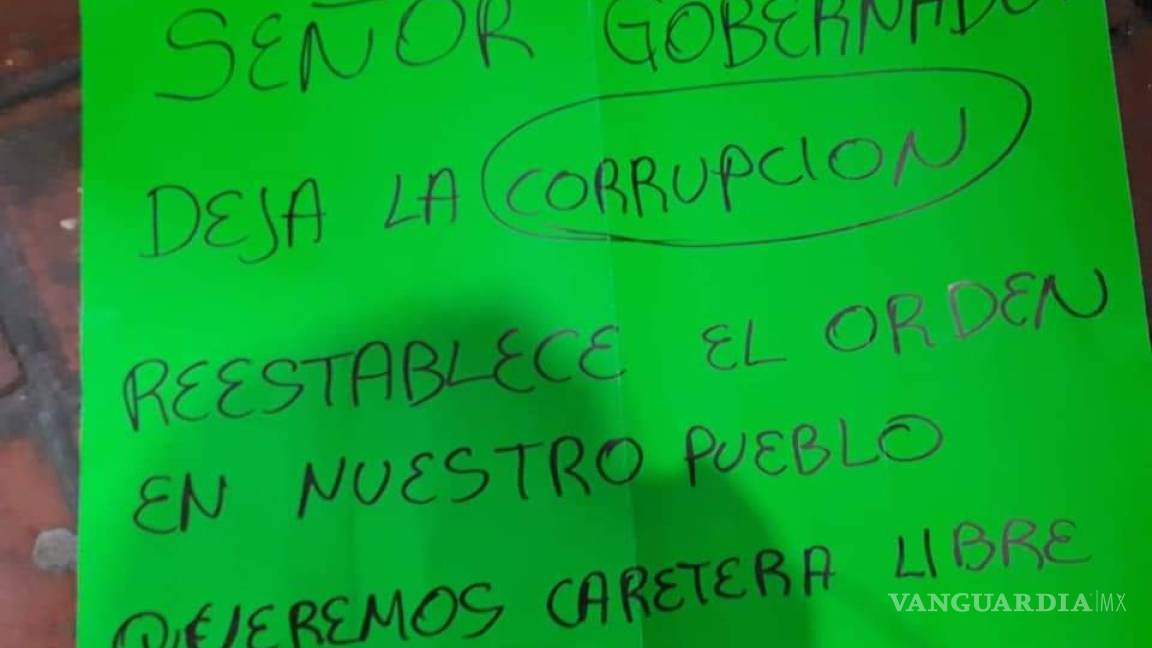 SEÑOR GOBERNADO
DEJA LA CORRUPCION
REESTABLECE EL ORDEN
EN NUESTRO PUEBLO
QUEREMOS CARETERA LIBRE
VANGUARDIA|MX